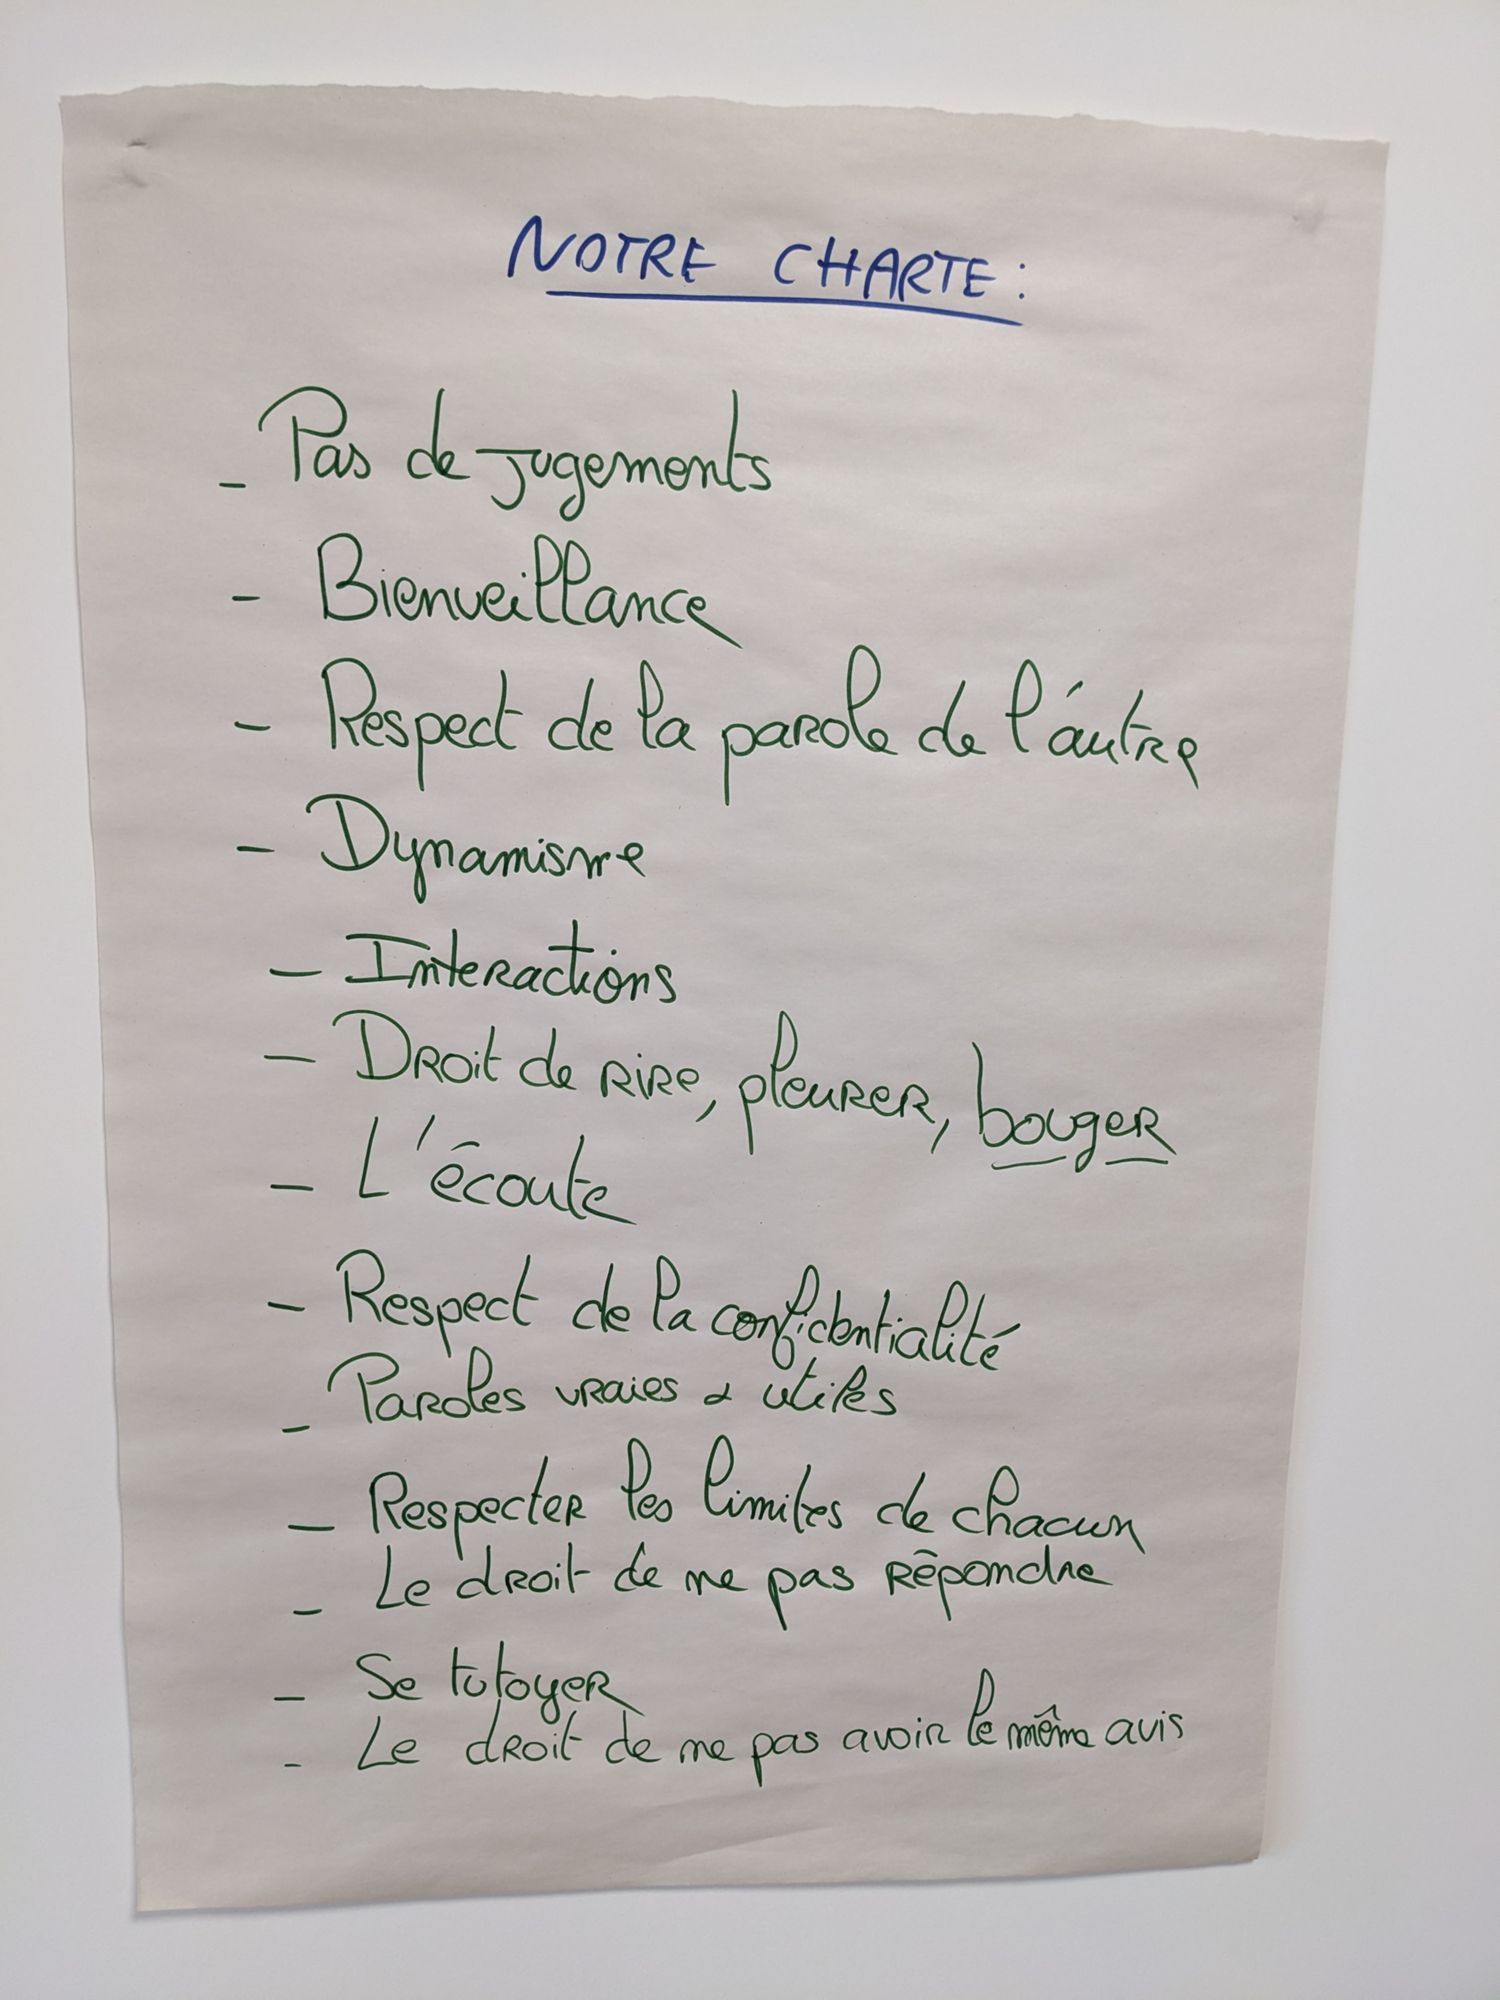 NOTRE CHARTE :
- Pas de jugements
- Bienveillance
- Respect de la parole de l'autre
- Dynamisme
- Interactions
- Droit de rire, pleurer, bouger
- L'écoute
- Respect de la confidentialité
- Paroles vraies & utiles
- Respecter les limites de chacun
- Le droit de ne pas répondre
- Se tutoyer
- Le droit de ne pas avoir le même avis